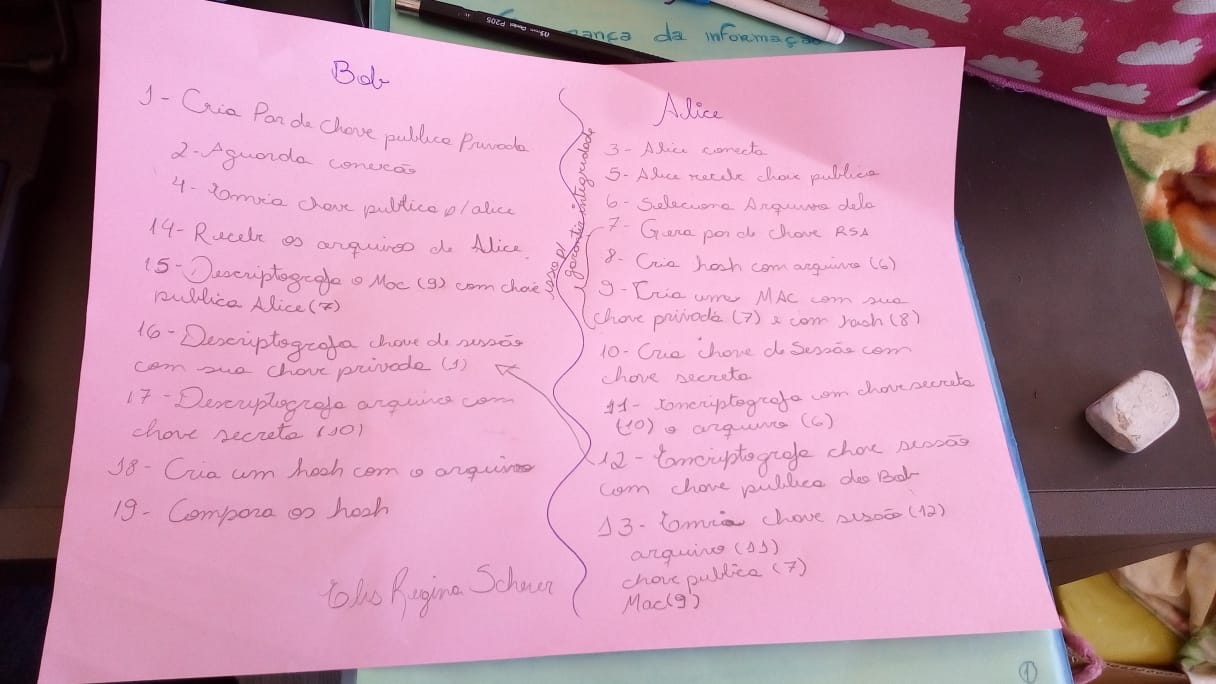 ança da informação
P205
Bob
1 - Cria Par de chave publica Privada
2 - Aguarda conexão
4 - Envia chave publica p/ alice
14 - Recebe os arquivos de Alice.
15 - Descriptografa o Mac (9) com chave
publica Alice (7)
16 - Descriptografa chave de sessão
com sua chave privada (1)
17 - Descriptografa arquivo com
chave secreta (10)
18 - Cria um hash com o arquivo
19 - Compara os hash
Regina Scherer
isso p/
garantir integridade
Alice
3 - Alice conecta
5 - Alice recebe chave publica
6 - Seleciona Arquivo dela
7 - Gera par de chave RSA
8 - Cria hash com arquivo (6)
9 - Cria uma MAC com sua
chave privada (7) e com hash (8)
10 - Cria chave de Sessão com
chave secreta
11 - Encriptografa com chave secreta
(10) o arquivo (6)
12 - Encriptografa chave sessão
com chave publica do Bob
13 - Envia chave sessão (12)
arquivo (11)
chave publica (7)
Mac (9)
1